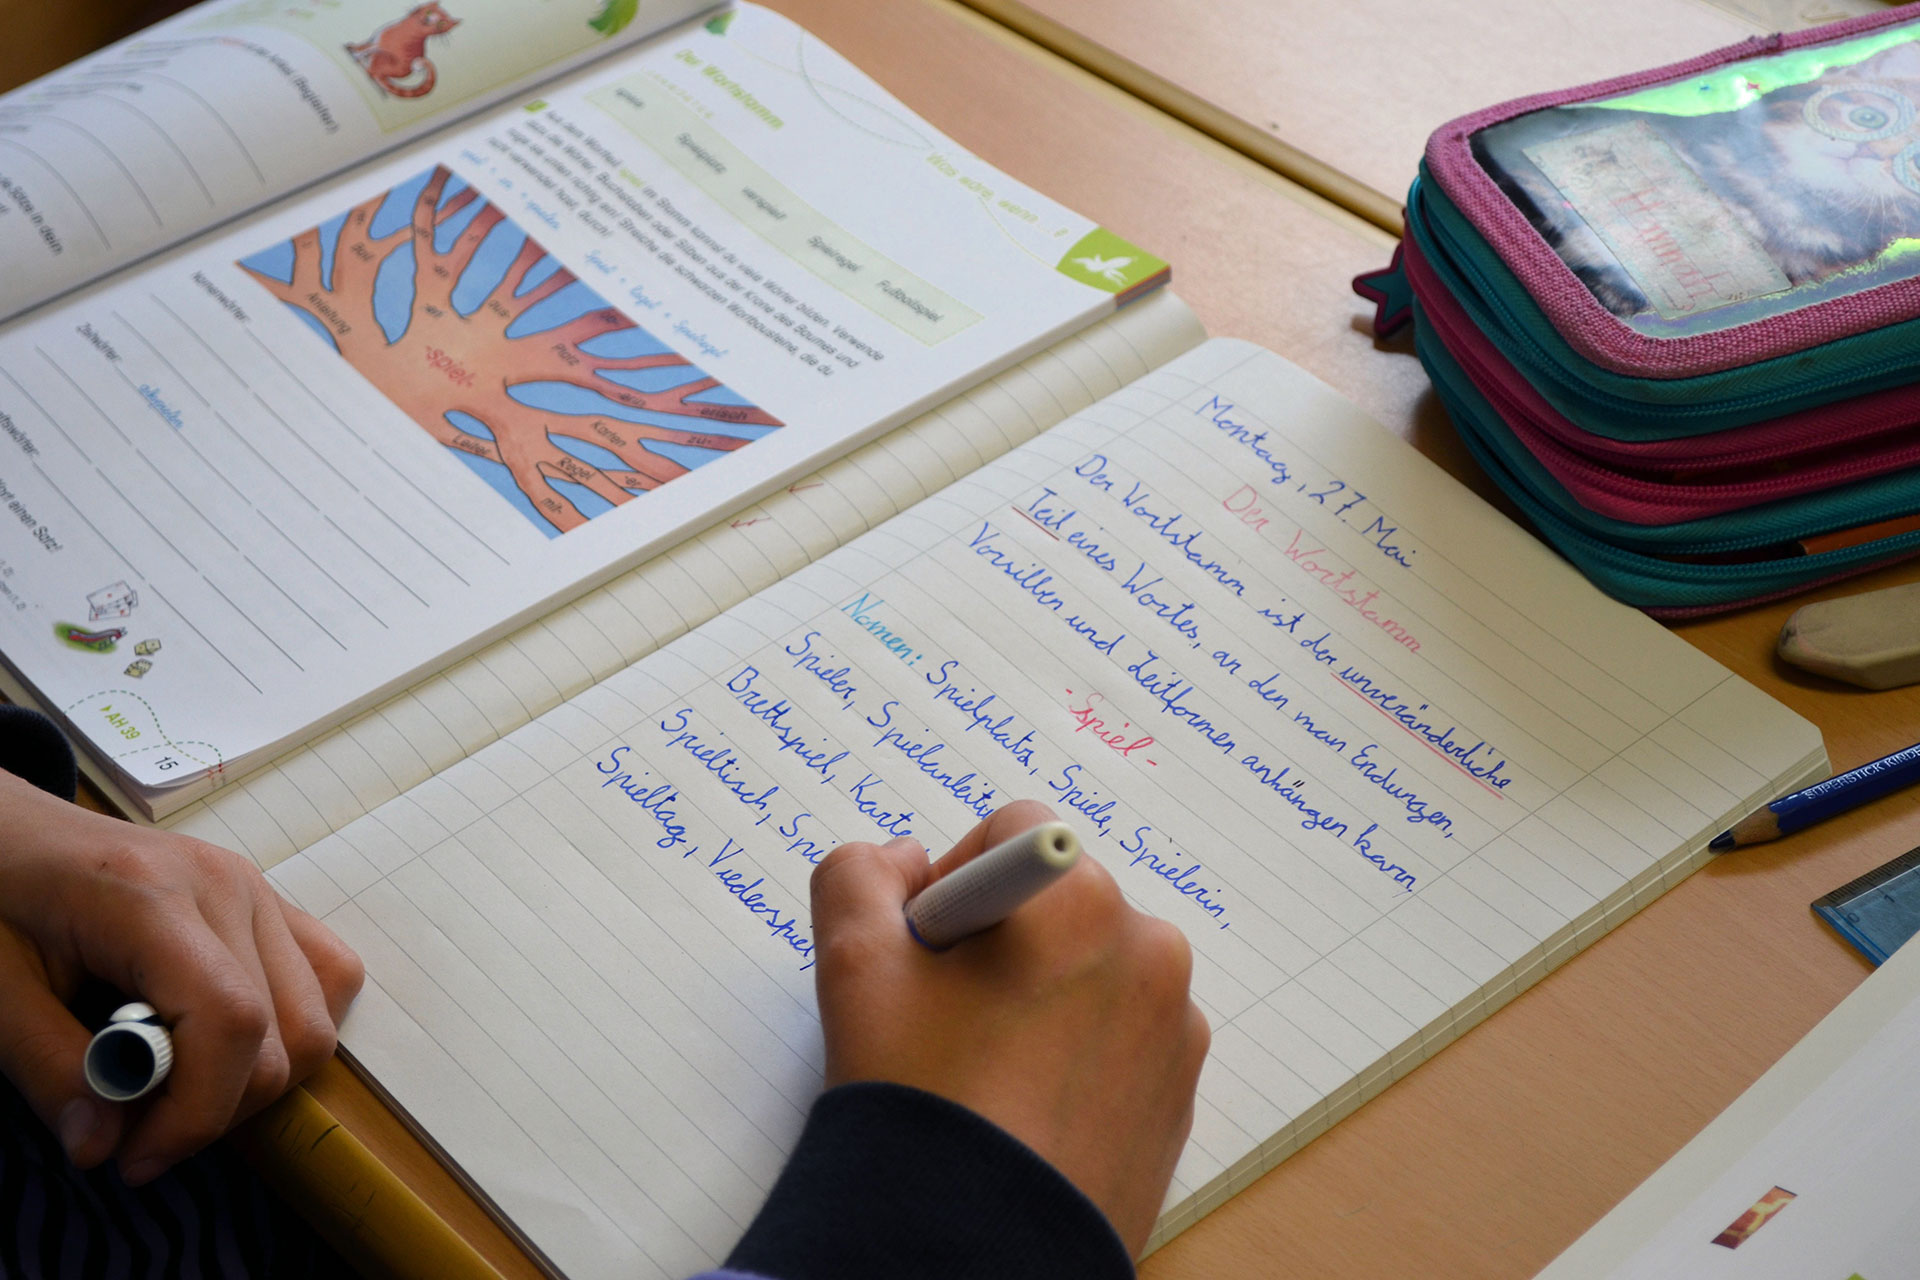 Montag, 27. Mai
Der Wortstamm
Der Wortstamm ist der unveränderliche
Teil eines Wortes, an den man Endungen,
Vorsilben und Zeitformen anhängen kann
-spiel-
Nomen: Spielplatz, Spiele, Spielerin,
Spieler, Spielanleitu
Brettspiel, Karte
Spieltisch, Spi
Spieltag, Videospiel,
Was wäre, wenn ...?
Der Wortstamm
Spielplatz
verspielt
Spielregel
Fußballspiel
1 Aus dem Wortteil spiel im Stamm kannst du viele Wörter bilden. Verwende
dazu die Wörter, Buchstaben oder Silben aus der Krone des Baumes und
füge sie unten richtig ein! Streiche die schwarzen Wortbausteine, die du
schon verwendet hast, durch!
Spiel + Regel = Spielregel
-spiel-
Anleitung
Ball
an
en
aus-
Platz
-erin
-erisch
Karten
zu-
Regel
-er
mit-
Leiter
Namenwörter:
Zeitwörter:
abspielen
einen Satz!
AH 39
15
Hannah
SUPERSTICK KINDER